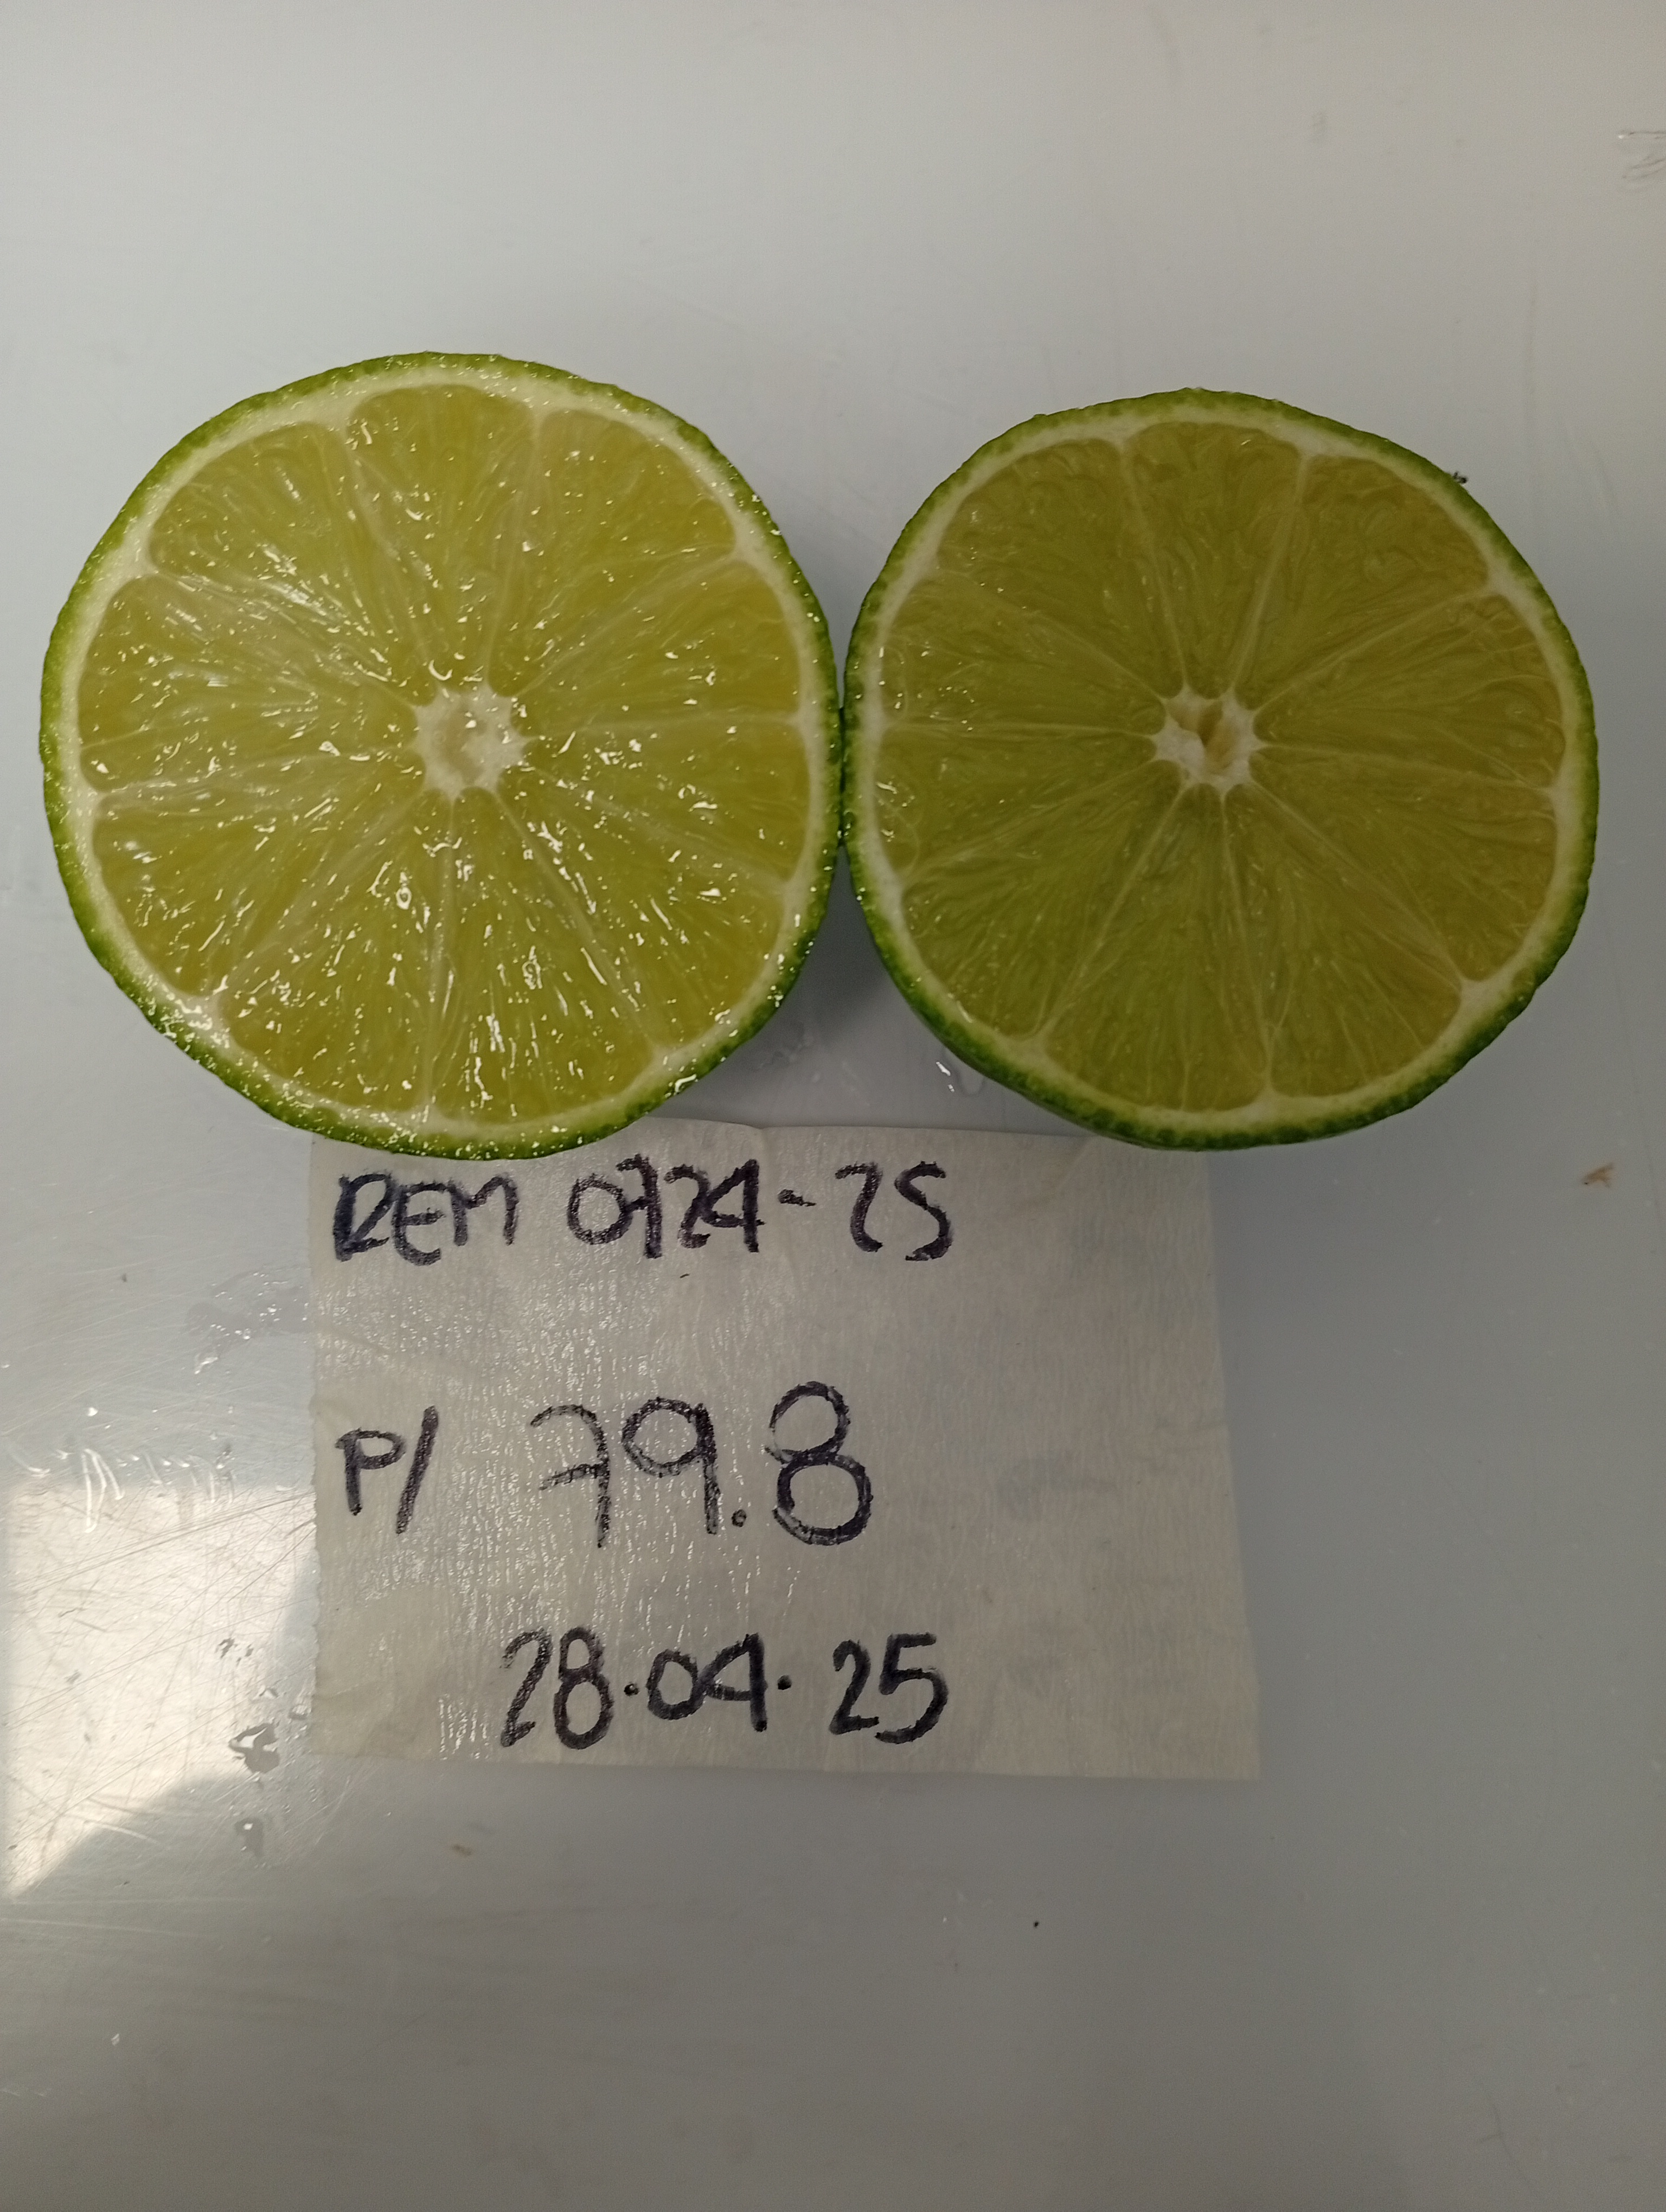 REM 0724-25
P/ 79.8
28.04.25